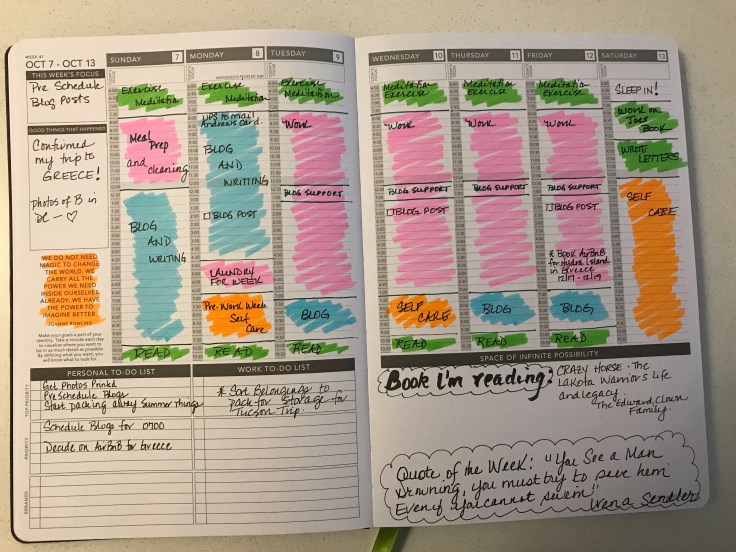 WEEK 41
OCT 7 - OCT 13
THIS WEEK'S FOCUS
Pre Schedule
Blog Posts
GOOD THINGS THAT HAPPENED
Confirmed
my trip to
GREECE!
photos of B in
DC — ♡
WE DO NOT NEED
MAGIC TO CHANGE
THE WORLD. WE
CARRY ALL THE
POWER WE NEED
INSIDE OURSELVES
ALREADY: WE HAVE
THE POWER TO
IMAGINE BETTER.
JOANNE ROWLING
Make your goals a part of your
identity. Take a minute each day
to visualize where you want to
be in as much detail as possible.
By defining what you want, you
will know what to look for.
SUNDAY 7
Exercise
Meditation
Meal
Prep
and cleaning
BLOG
AND
WRITING
READ
MONDAY 8
INDIGENOUS PEOPLES' DAY
Exercise
Meditation
UPS to mail
Andrew's Card.
BLOG
AND
WRITING
☐ BLOG POST
LAUNDRY
FOR WEEK
Pre-Work Week
Self
Care
READ
TUESDAY 9
Exercise
Meditation
WORK
BLOG SUPPORT
BLOG
READ
WEDNESDAY 10
Meditation
Exercise
WORK
BLOG SUPPORT
☐ BLOG POST
SELF
CARE
READ
THURSDAY 11
Meditation
Exercise
WORK
BLOG SUPPORT
BLOG
READ
FRIDAY 12
Meditation
Exercise
WORK
BLOG SUPPORT
☐ BLOG POST
* Book AirBnB
for Hydra Island
in Greece
12/17 - 12/19
BLOG
READ
SATURDAY 13
SLEEP IN!
WORK ON
JOES
BOOK
WRITE
LETTERS
SELF
CARE
PERSONAL TO-DO LIST
TOP PRIORITY
Get Photos Printed
PreSchedule Blogs
Start packing away Summer things
PRIORITY
Schedule Blogs for 0700
Decide on AirBnB for Greece
ERRANDS
WORK TO-DO LIST
* Sort Belongings to
pack for Storage for
Tucson Trip.
SPACE OF INFINITE POSSIBILITY
Book I'm reading:
CRAZY HORSE - The
Lakota Warrior's Life
and legacy.
The Edward Clown
Family.
Quote of the Week: "You See a Man
Drowning, you must try to save him
Even if you cannot swim"
Irena Sendler